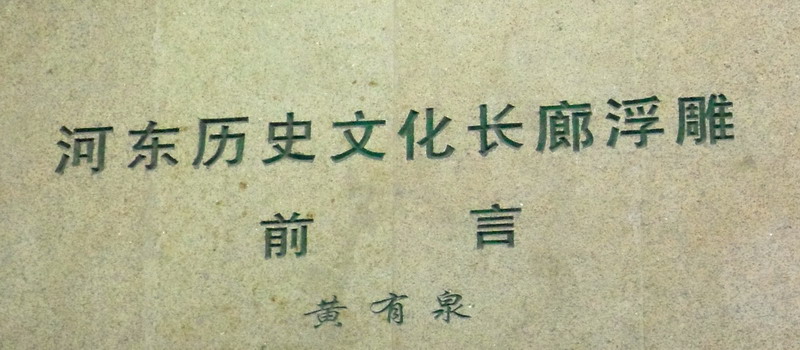 河东历史文化长廊浮雕
前 言
黄有泉